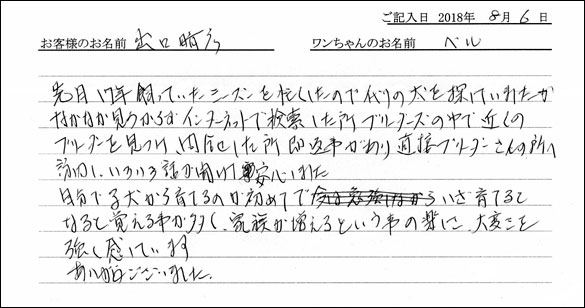 ご記入日 2018年 8月 6日
お客様のお名前 出口 ワンちゃんのお名前 ベル
先月17年飼っていたシーズーを亡くしたので代りの犬を探していましたが
なかなか見つからずインターネットで検索した所ブリーダーズの中で近くの
ブリーダーを見つけ、問合せした所即返事があり直接ブリーダーさんの所へ
訪問し、いろいろ話が聞けて安心しました
自分で子犬から育てるのが初めてで いざ育てると
なると覚える事が多く、家族が増えるという事の楽しさ、大変さを
強く感じています
ありがとうございました。